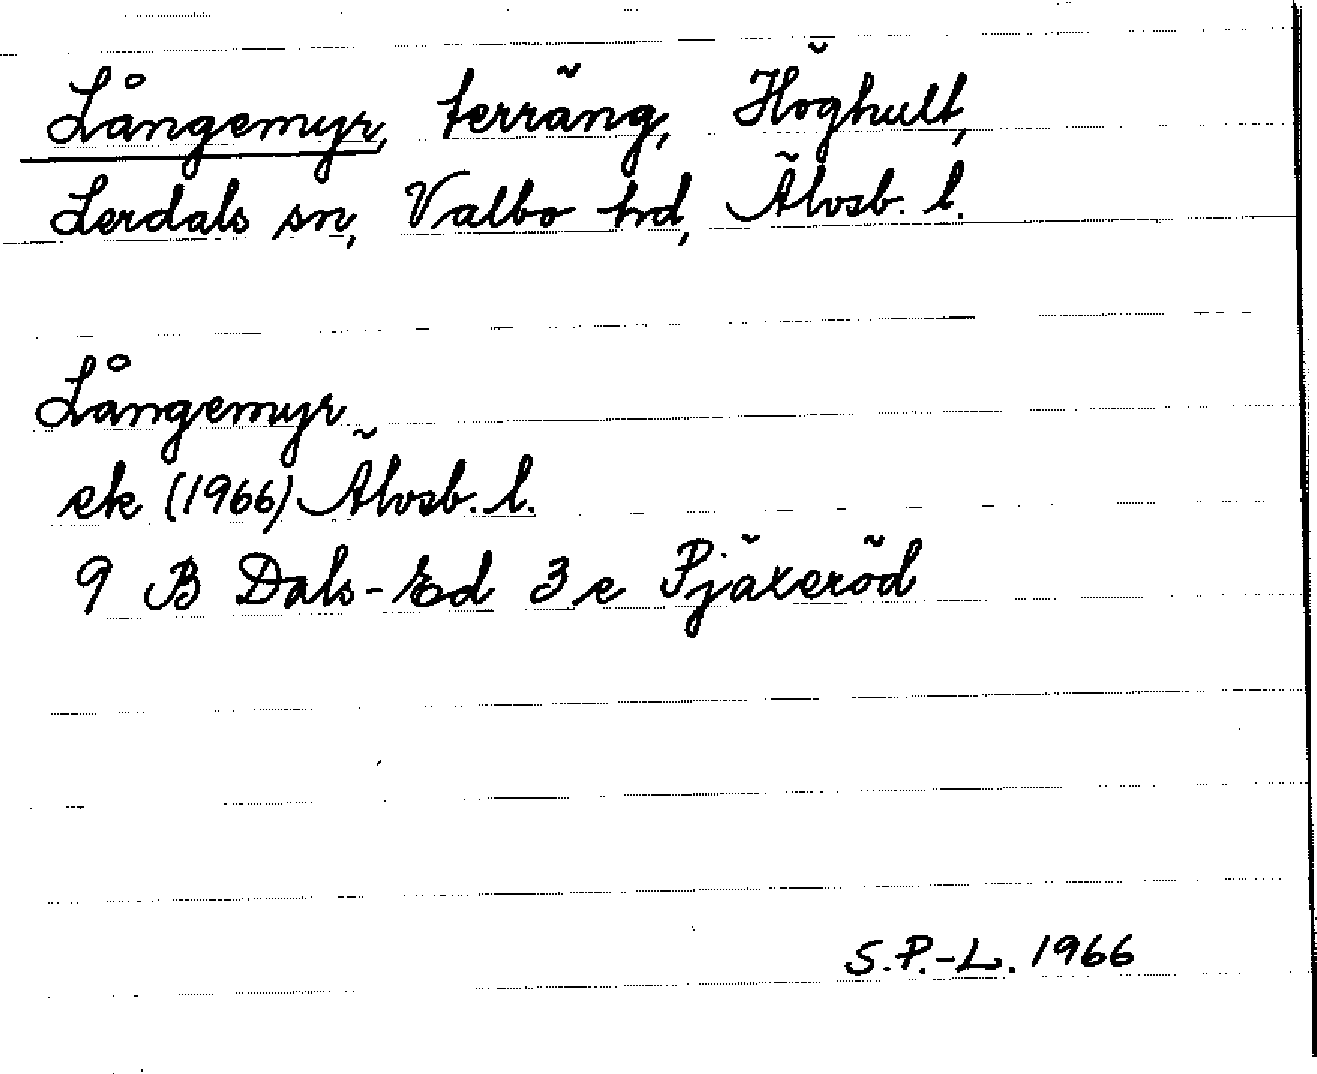 Långemyr, terräng, Höghult,
Lerdals sn, Valbo hd, Älvsb. l.
Långemyr
ek (1966) Älvsb. l.
9 B Dals-Ed 3 e Pjäxeröd
S.P.-L. 1966